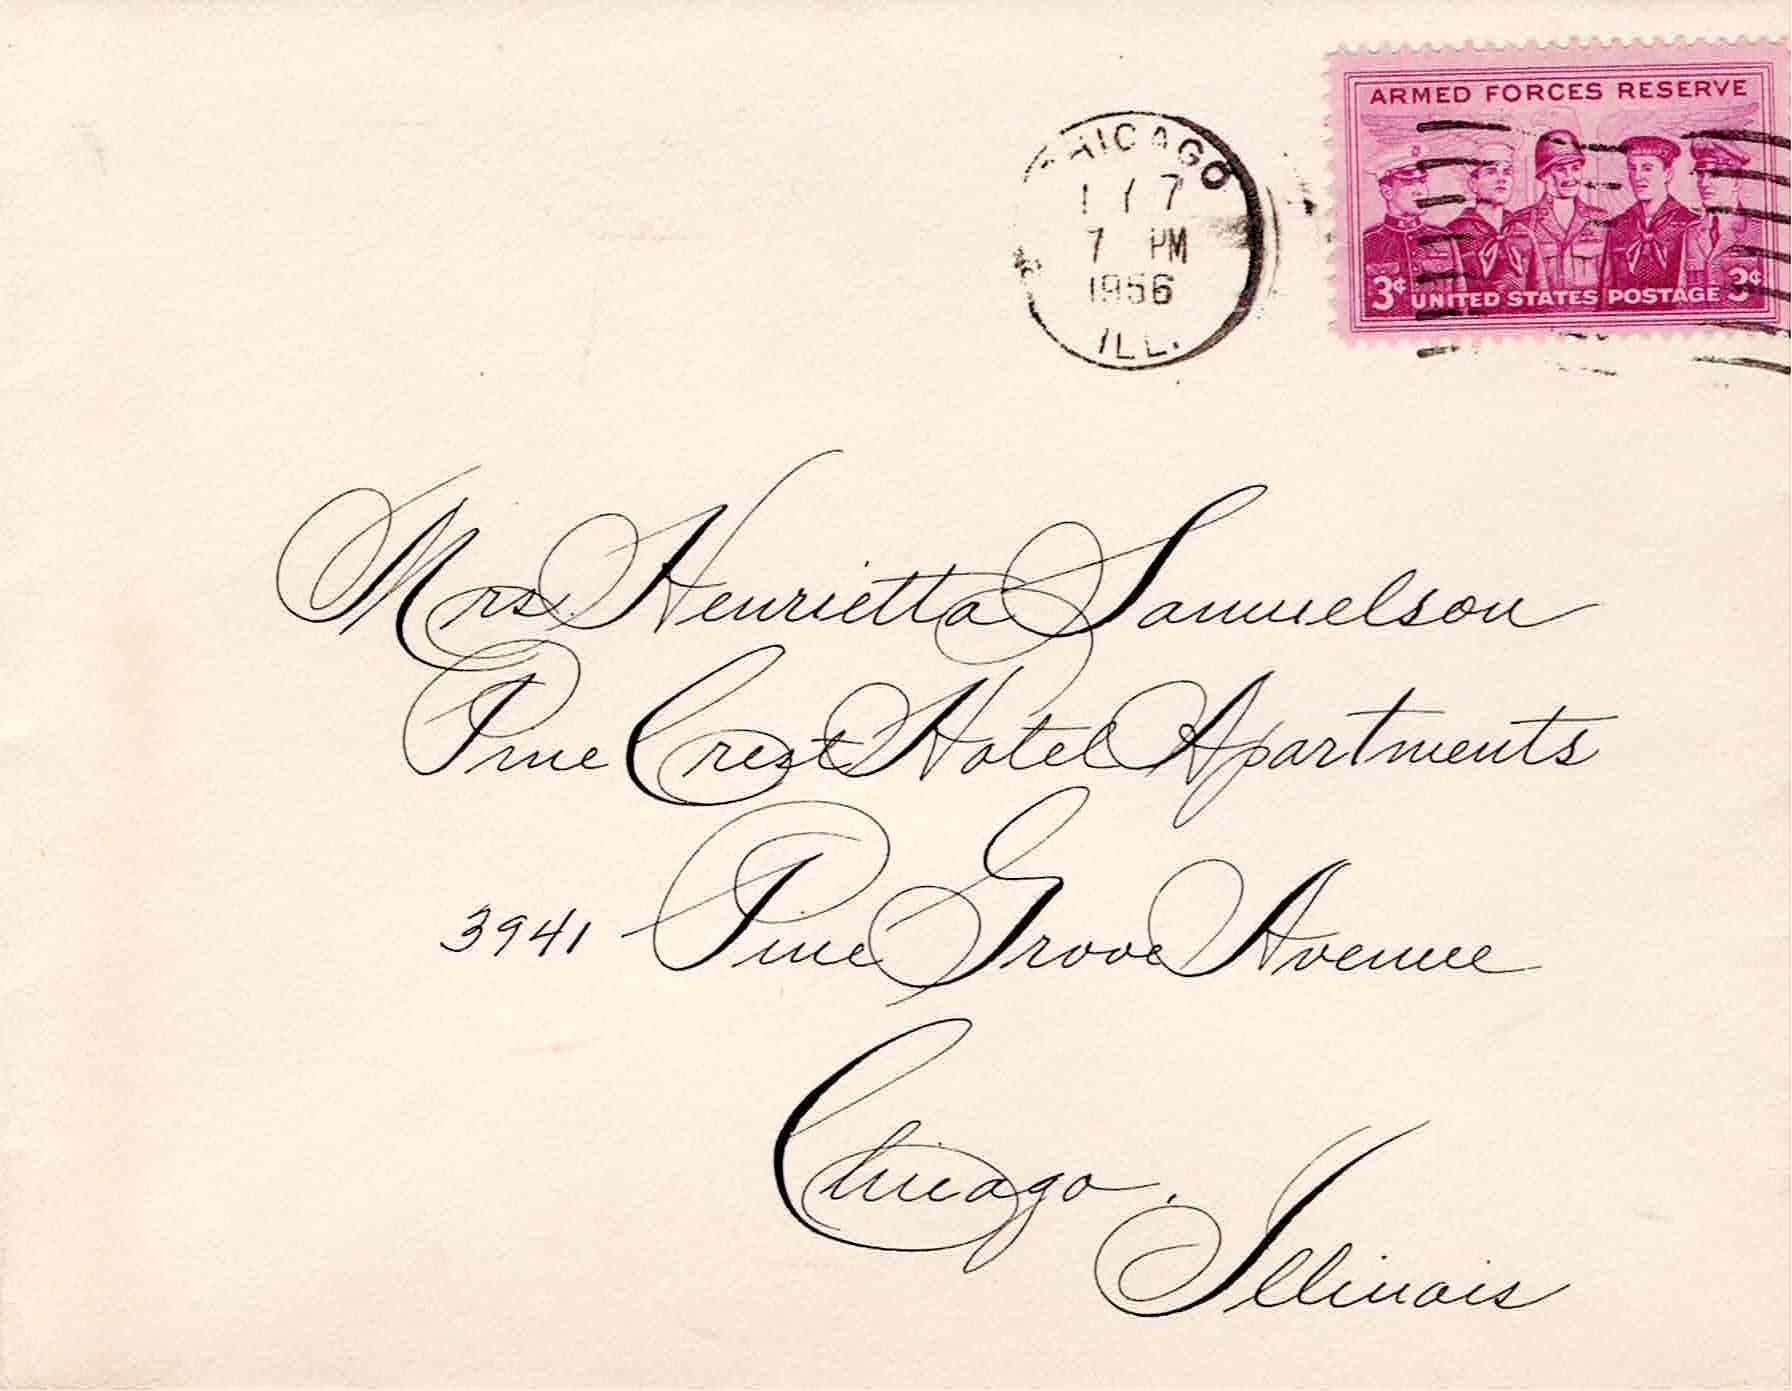 ARMED FORCES RESERVE
3¢ UNITED STATES POSTAGE 3¢
CHICAGO
7
7 PM
1956
ILL.
Mrs. Henrietta Samuelson
Pine Crest Hotel Apartments
3941 Pine Grove Avenue
Chicago,
Illinois